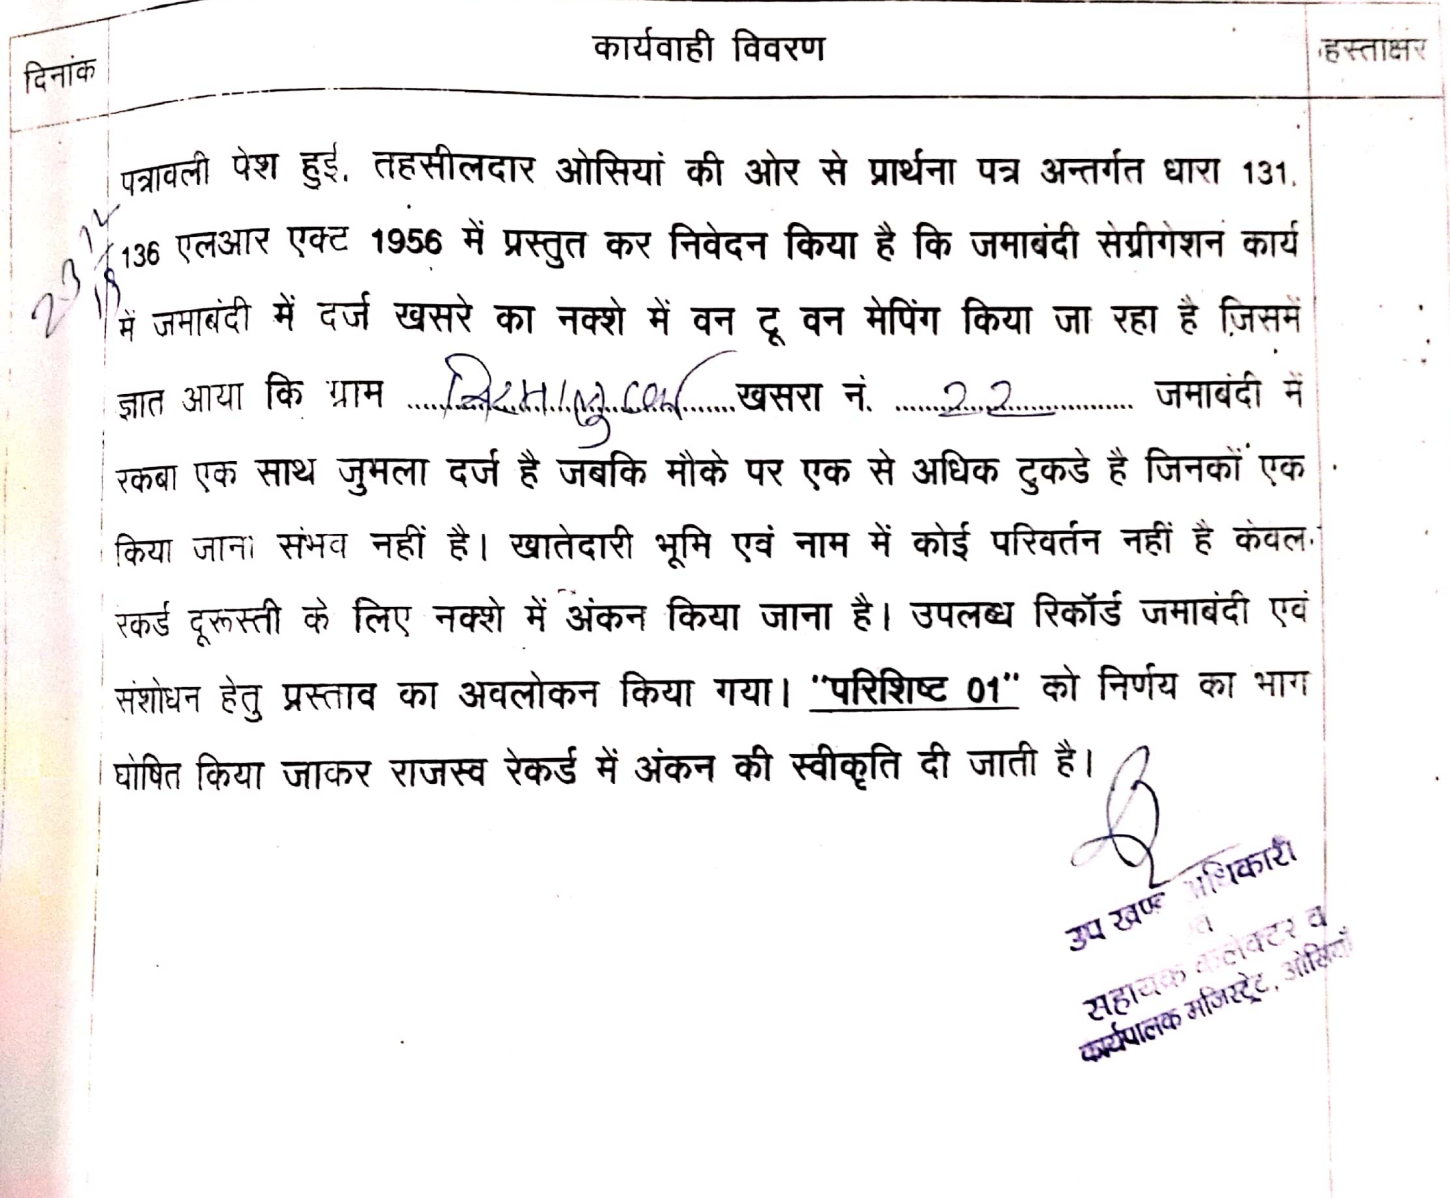 दिनांक
कार्यवाही विवरण
हस्ताक्षर
पत्रावली पेश हुई, तहसीलदार ओसियां की ओर से प्रार्थना पत्र अन्तर्गत धारा 131,
136 एलआर एक्ट 1956 में प्रस्तुत कर निवेदन किया है कि जमाबंदी सेग्रीगेशन कार्य
में जमाबंदी में दर्ज खसरे का नक्शे में वन टू वन मेपिंग किया जा रहा है जिसमें
ज्ञात आया कि ग्राम .................... खसरा नं. ......22............ जमाबंदी में
रकबा एक साथ जुमला दर्ज है जबकि मौके पर एक से अधिक टुकडे है जिनकों एक
किया जाना संभव नहीं है। खातेदारी भूमि एवं नाम में कोई परिवर्तन नहीं है केवल
रकर्ड दूरूस्ती के लिए नक्शे में अंकन किया जाना है। उपलब्ध रिकॉर्ड जमाबंदी एवं
संशोधन हेतु प्रस्ताव का अवलोकन किया गया। "परिशिष्ट 01" को निर्णय का भाग
घोषित किया जाकर राजस्व रेकर्ड में अंकन की स्वीकृति दी जाती है।
उप खण्ड अधिकारी
व
सहायक कलेक्टर व
कार्यपालक मजिस्ट्रेट, ओसियाँ